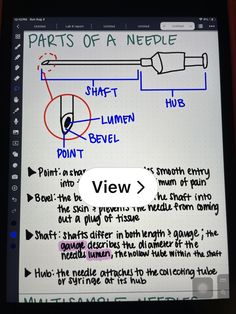 PARTS OF A NEEDLE
SHAFT
HUB
LUMEN
BEVEL
POINT
Point: a sha smooth entry
into mum of pain
Bevel: the be the shaft into
the skin & prevents the needle from coming
out a plug of tissue
View >
Shaft: shafts differ in both length & gauge; the
gauge describes the diameter of the
needle lumen, the hollow tube within the shaft
Hub: the needle attaches to the collecting tube
or syringe at its hub
MULTISAMPLE NEEDLES